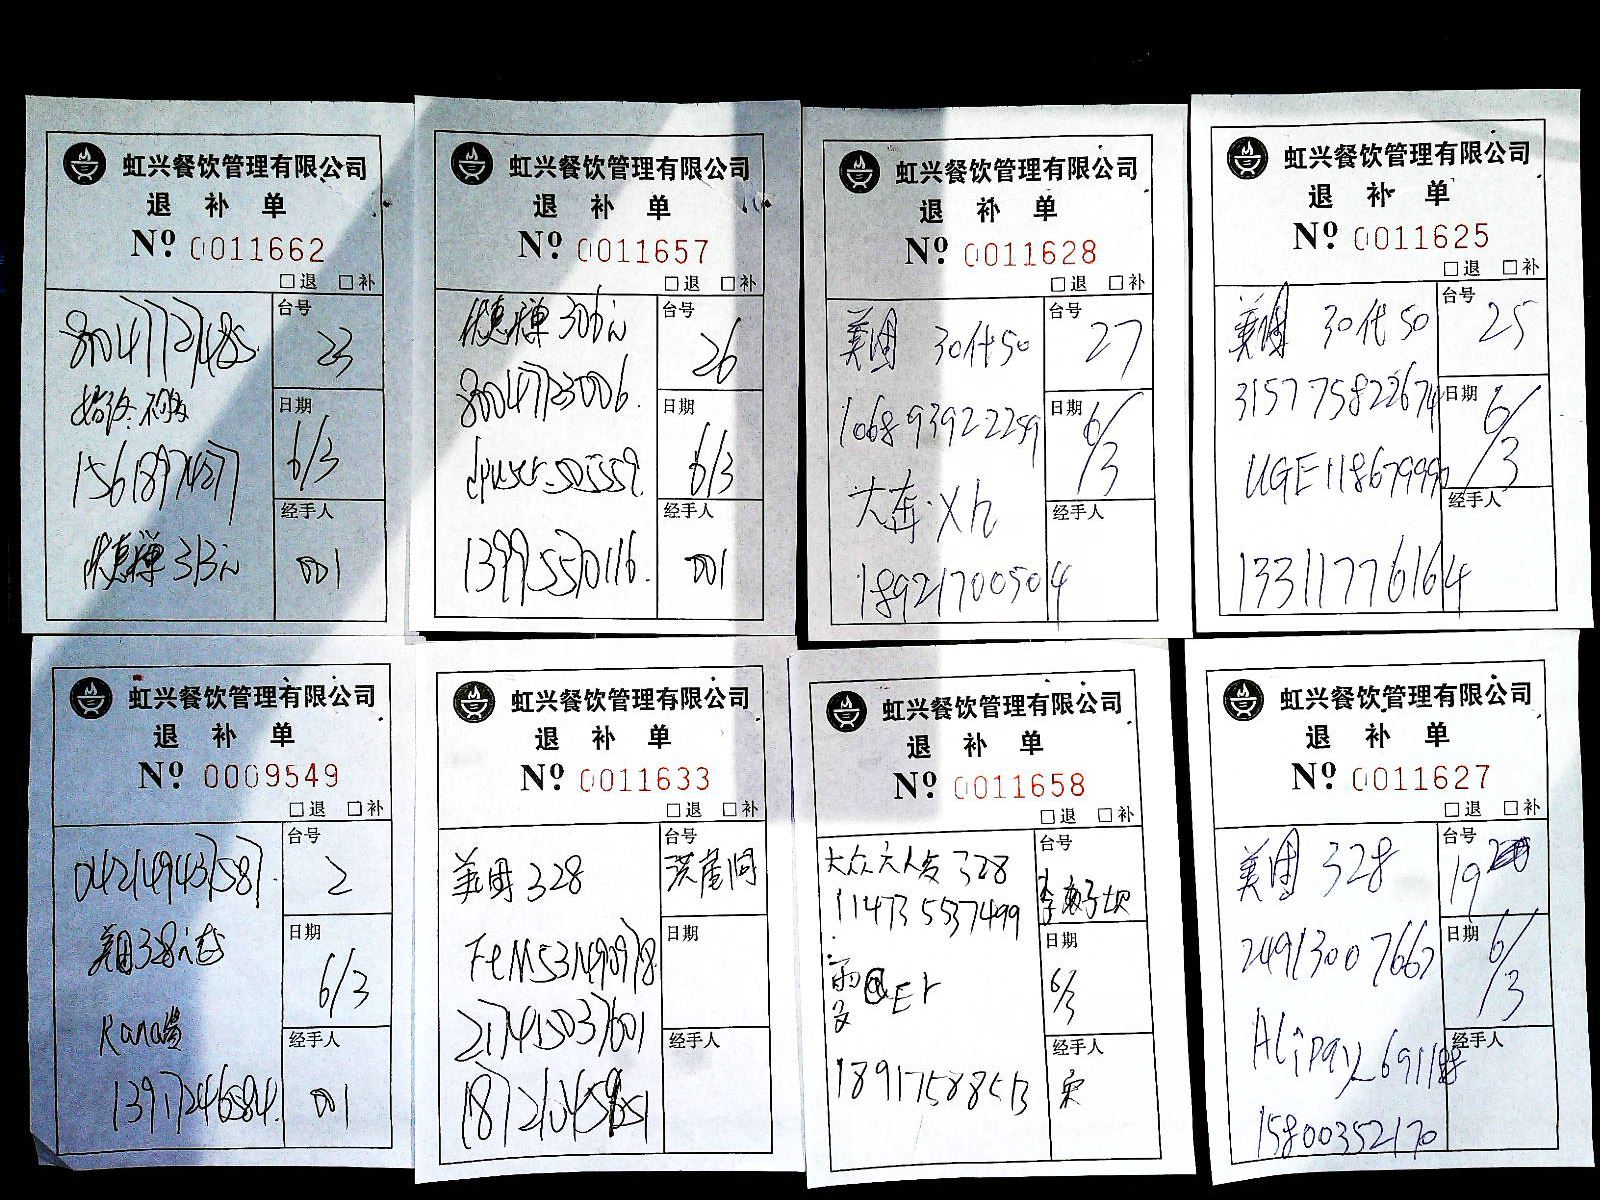 虹兴餐饮管理有限公司
退 补 单
Nº 0011662
□退 □补
台号
23
日期
6/3
15618974277
经手人
001
虹兴餐饮管理有限公司
退 补 单
Nº 0011657
□退 □补
台号
26
80047723006.
日期
6/3
经手人
13995570116.
001
虹兴餐饮管理有限公司
退 补 单
Nº 0011628
□退 □补
美团 30代50
台号
27
106893922259
日期
6/3
大连·Xh
经手人
18921700504
虹兴餐饮管理有限公司
退 补 单
Nº 0011625
□退 □补
美团 30代50
台号
25
315775822674
日期
6/3
经手人
13311776164
虹兴餐饮管理有限公司
退 补 单
Nº 0009549
□退 □补
台号
2
日期
6/3
美团328元套
经手人
13917246584.
001
虹兴餐饮管理有限公司
退 补 单
Nº 0011633
□退 □补
美团 328
台号
洪崖洞
日期
217415037601
经手人
虹兴餐饮管理有限公司
退 补 单
Nº 0011658
□退 □补
大众六人套 328
台号
李子坝
114735537499
日期
6/3
经手人
宋
18917588513
虹兴餐饮管理有限公司
退 补 单
Nº 0011627
□退 □补
美团 328
台号
19
24913007667
日期
6/3
经手人
15800352170